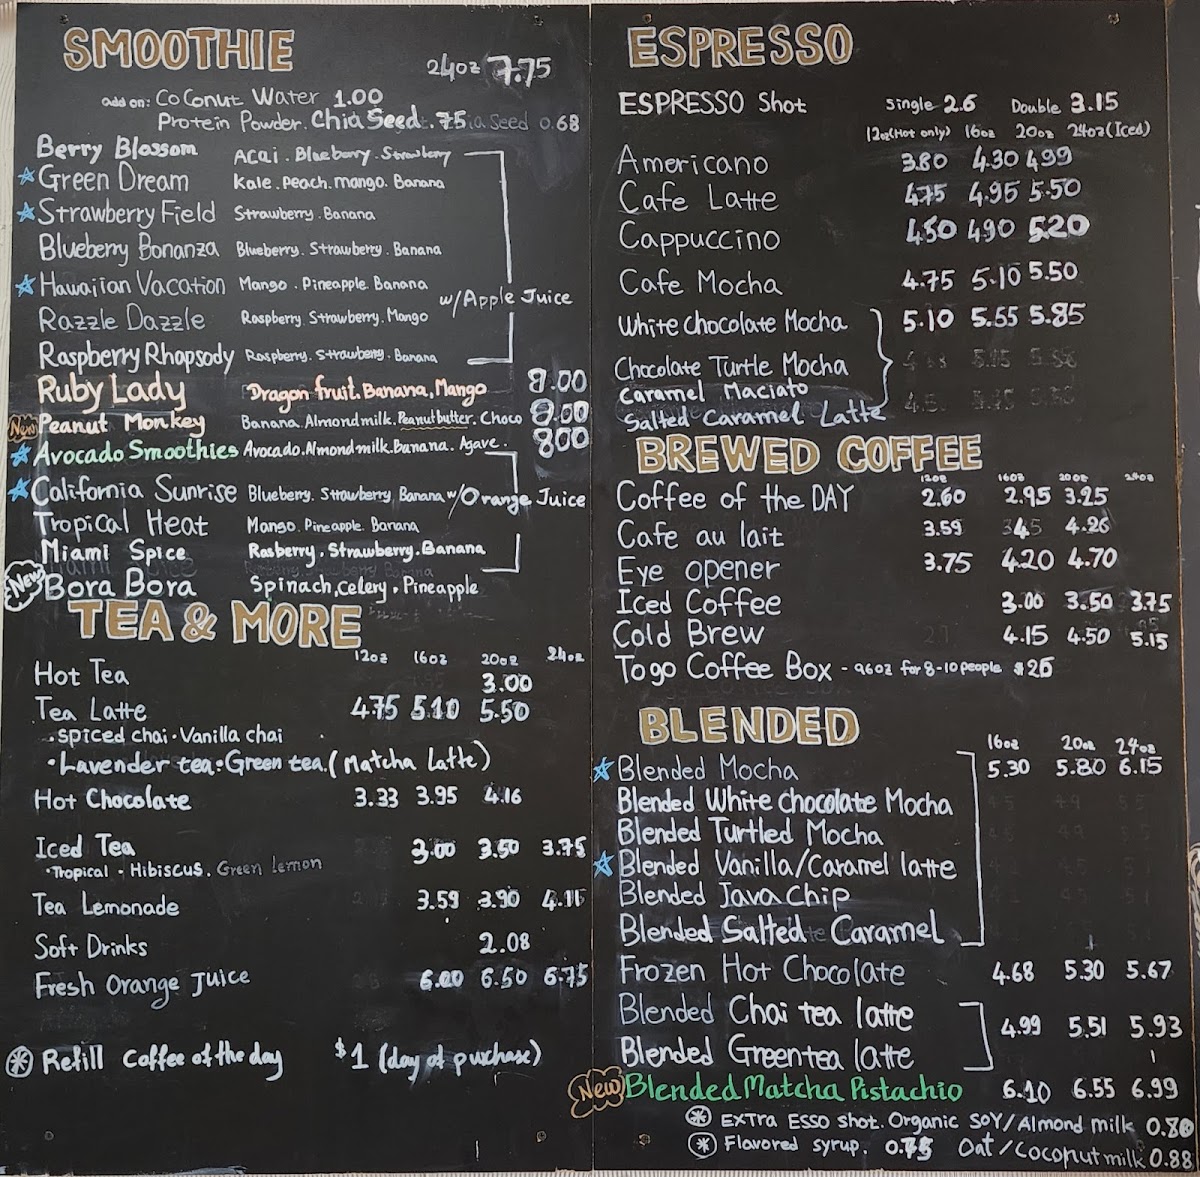 SMOOTHIE
24oz 7.75
add on: Coconut Water 1.00
Protein Powder. Chia Seed .75 0.68
Berry Blossom Acai. Blueberry. Strawberry
Green Dream Kale. Peach. Mango. Banana
Strawberry Field Strawberry. Banana
Blueberry Bonanza Blueberry. Strawberry. Banana
Hawaiian Vacation Mango. Pineapple. Banana
w/Apple Juice
Razzle Dazzle Raspberry. Strawberry. Mango
Raspberry Rhapsody Raspberry. Strawberry. Banana
Ruby Lady Dragon fruit. Banana, Mango 8.00
New Peanut Monkey Banana. Almond milk. Peanut butter. Choco 8.00
Avocado Smoothies Avocado. Almond milk. Banana. Agave. 800
California Sunrise Blueberry. Strawberry, Banana w/Orange Juice
Tropical Heat Mango. Pineapple. Banana
Miami Spice Rasberry. Strawberry. Banana
New Bora Bora Spinach, Celery, Pineapple
TEA & MORE
12oz 16oz 20oz 24oz
Hot Tea 3.00
Tea Latte 4.75 5.10 5.50
. spiced chai . Vanilla chai
• Lavender tea • Green tea. (Matcha Latte)
Hot Chocolate 3.33 3.95 4.16
Iced Tea 3.00 3.50 3.75
• Tropical • Hibiscus. Green lemon
Tea Lemonade 3.59 3.90 4.11
Soft Drinks 2.08
Fresh Orange Juice 6.00 6.50 6.75
Refill Coffee of the day $1 (day of purchase)
ESPRESSO
ESPRESSO Shot Single 2.6 Double 3.15
12oz(Hot only) 16oz 20oz 24oz(Iced)
Americano 3.80 4.30 4.99
Cafe Latte 4.75 4.95 5.50
Cappuccino 4.50 4.90 5.20
Cafe Mocha 4.75 5.10 5.50
White chocolate Mocha 5.10 5.55 5.85
Chocolate Turtle Mocha
Caramel Maciato
Salted Caramel Latte
BREWED COFFEE
12oz 16oz 20oz 24oz
Coffee of the DAY 2.60 2.95 3.25
Cafe au lait 3.59 4.26
Eye opener 3.75 4.20 4.70
Iced Coffee 3.00 3.50 3.75
Cold Brew 4.15 4.50 5.15
To go Coffee Box - 96oz for 8-10 people $26
BLENDED
16oz 20oz 24oz
Blended Mocha 5.30 5.80 6.15
Blended White chocolate Mocha
Blended Turtled Mocha
Blended Vanilla/Caramel latte
Blended Java Chip
Blended Salted Caramel
Frozen Hot Chocolate 4.68 5.30 5.67
Blended Chai tea latte
4.99 5.51 5.93
Blended Green tea latte
New Blended Matcha Pistachio 6.10 6.55 6.99
Extra Esso shot. Organic Soy/Almond milk 0.80
Flavored syrup. 0.75 Oat/Coconut milk 0.88